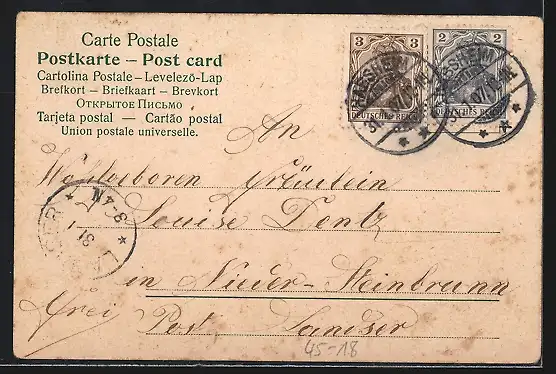 Carte Postale
Postkarte – Post card
Cartolina Postale – Levelező-Lap
Brefkort – Briefkaart – Brevkort
ОТКРЫТОЕ ПИСЬМО
Tarjeta postal — Cartão postal
Union postale universelle.
3 3
DEUTSCHES REICH
2 2
DEUTSCHES REICH
An
Wohlgeboren Fräulein
Louise Dentz
in Nieder-Steinbrunn
frei Post Landser
45-18
31 1
8-9 N